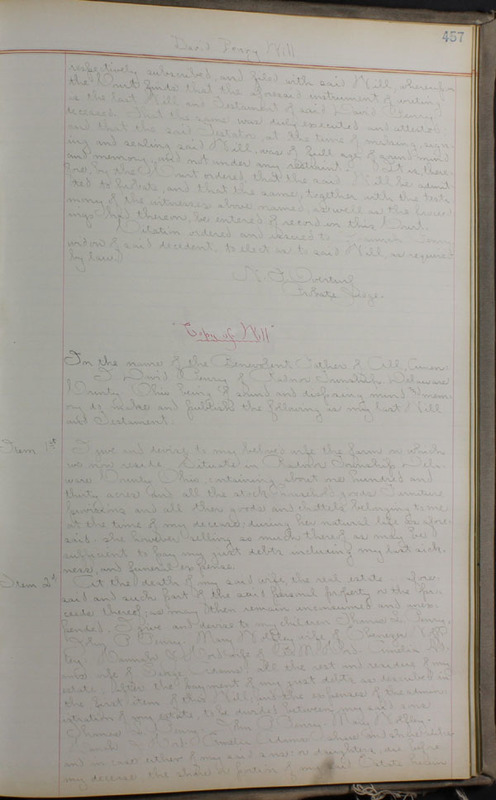 457
David Perry Will
respectively subscribed, and filed with said Will, whereupon
the Court finds that the aforesaid instrument of writing
is the last Will and Testament of said David Perry
deceased. That the same was duly executed and attested
and that the said Testator at the time of making, sign-
ing and sealing said Will, was of full age, of sound mind
and memory, and not under any restraint. It is there-
fore, by the Court ordered that the said Will be admit-
ted to probate, and that the same, together with the testi-
mony of the witnesses above named, as well as the proceed-
ings had thereon, be entered of record in this Court.
Citation ordered and issued to Perry
widow of said decedent to elect as to said Will, as required
by law.
Probate Judge.
"Copy of Will"
In the name of the Benevolent Father of All, Amen.
I David Perry of Radnor Township, Delaware
County Ohio being of sound and disposing mind & mem-
ory do make and publish the following as my last Will
and Testament.
Item 1st I give and devise to my beloved wife the farm on which
we now reside situated in Radnor Township, Dela-
ware County Ohio containing about one hundred and
thirty acres and all the stock household goods furniture
provisions and all other goods and chattels belonging to me
at the time of my decease during her natural life as afore-
said. she however selling so much thereof as may be
sufficient to pay my just debts including my last sick-
ness, and funeral expenses.
Item 2d At the death of my said wife the real estate afore-
said and such part of the said personal property or the pro-
ceeds thereof, as may then remain unconsumed and unex-
pended. I give and devise to my children Thomas Perry,
John P Perry, Mary wife of Ebenezer
Hannah wife of Amelia
wife of George all the rest and residue of my
estate, after the payment of my just debts as described in
the first item of this Will, and the expenses of the admin-
istration of my estate, to be divided between my said sons
Thomas Perry, John P Perry, Mary
Amelia share and share alike
and in case either of my said sons or daughters die before
my decease, the share or portion of my said Estate herein